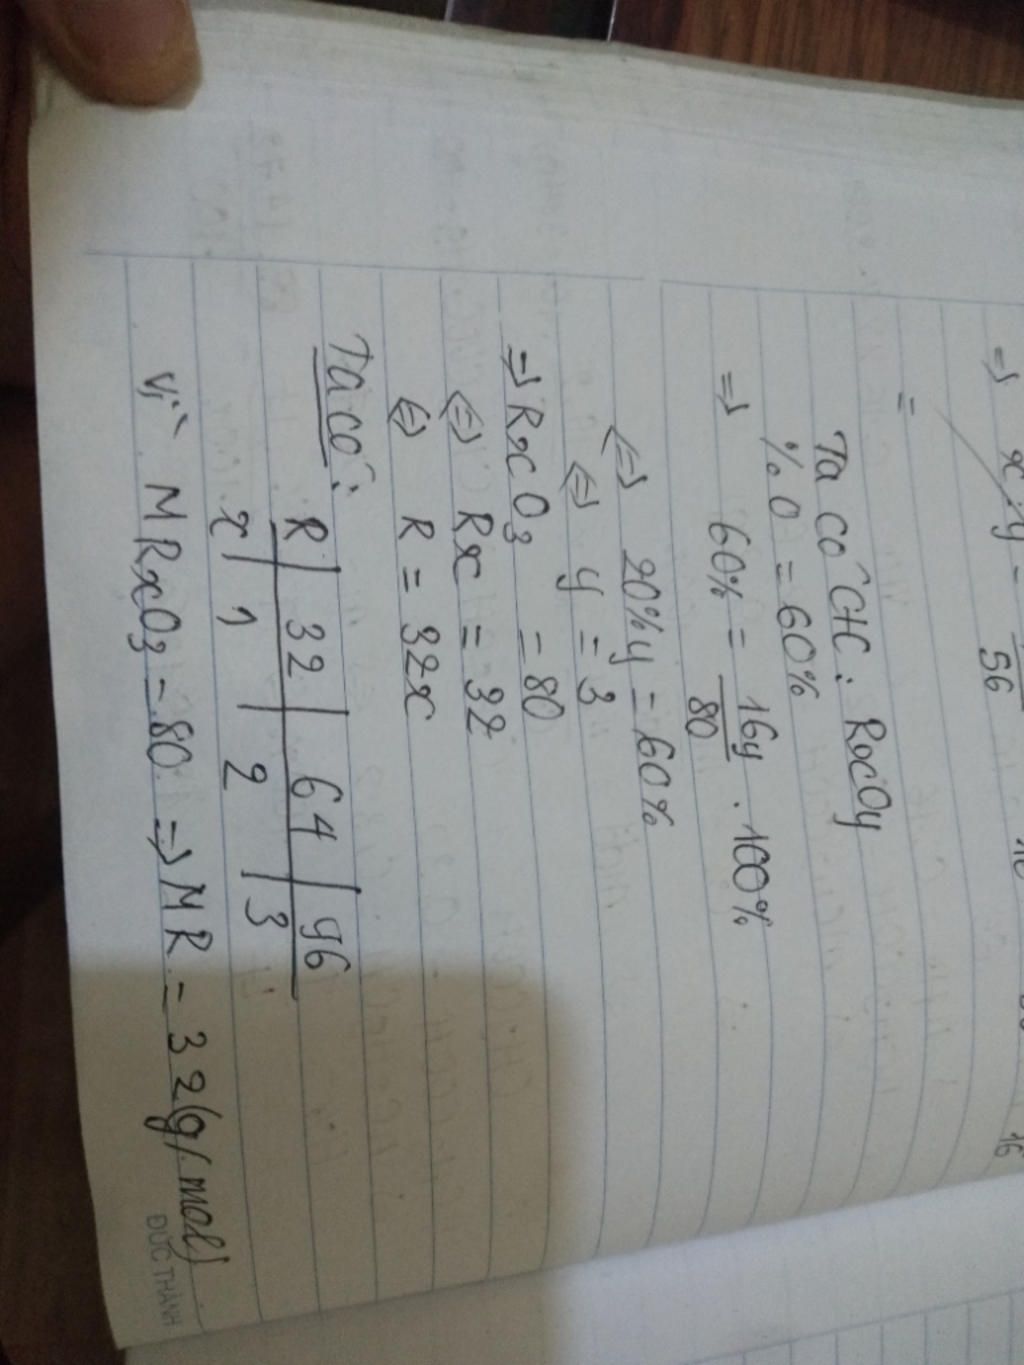 => x:y =
56
16
=
Ta có CTHC: RxOy
% O = 60%
=> 60% = 16y/80 . 100%
<=> 20%y = 60%
<=> y = 3
=> RxO3 = 80
<=> Rx = 32
<=> R = 32x
Ta có:
R | 32 | 64 | 96
x | 1 | 2 | 3
Vì MRxO3 = 80 => MR = 32(g/mol)
ĐỨC THÀNH